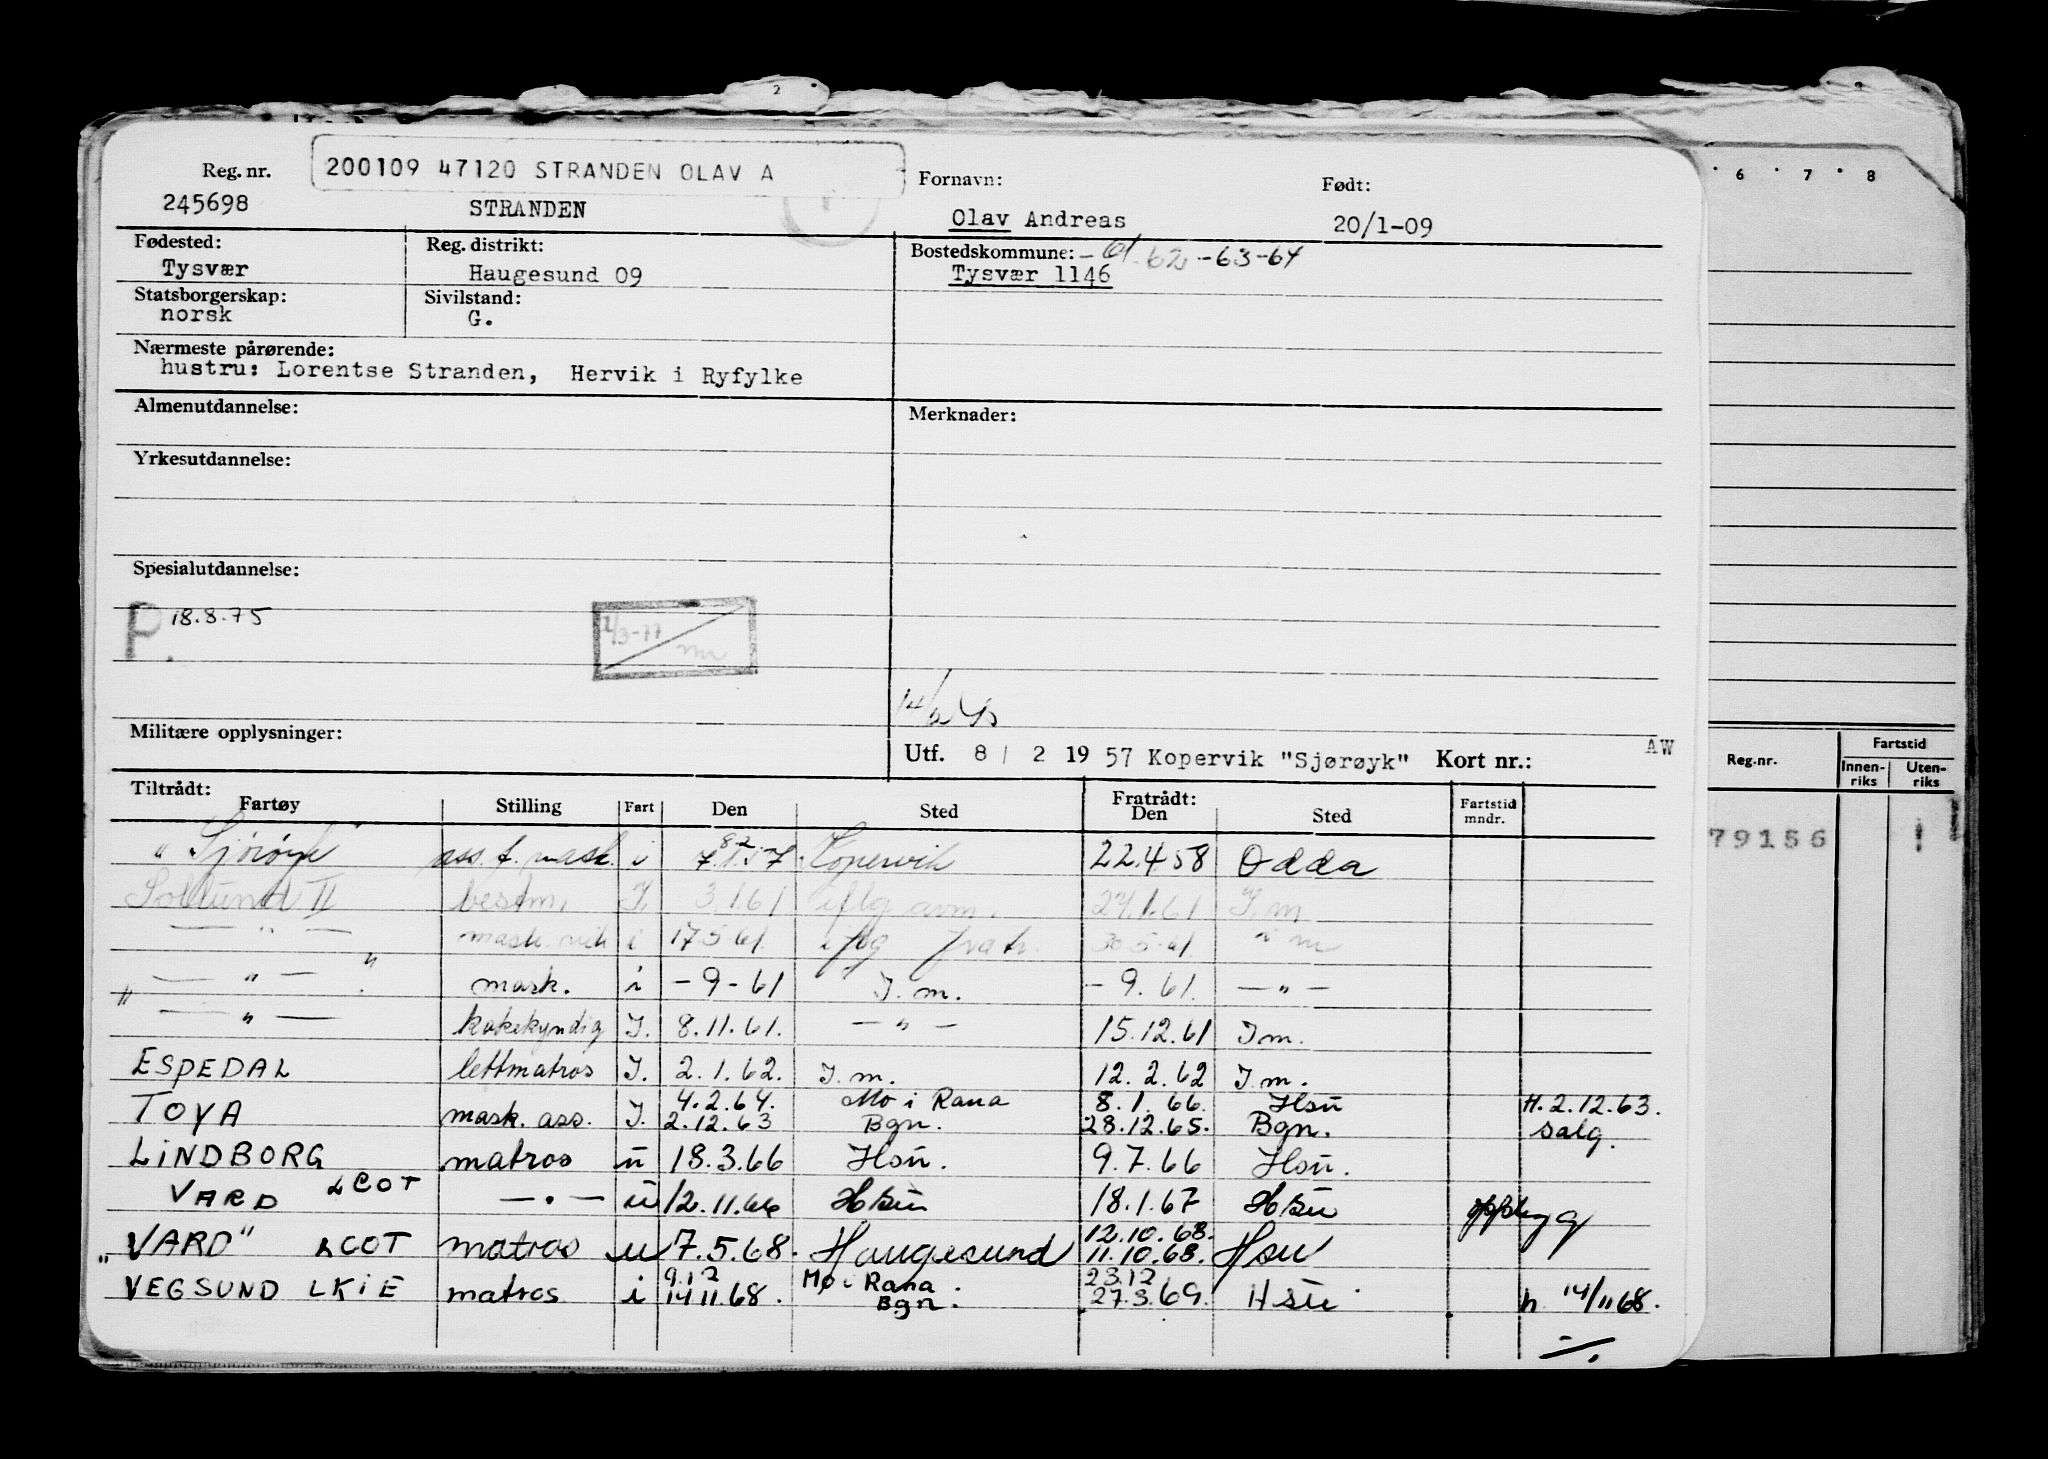 2
200109 47120 STRANDEN OLAV A
Reg. nr. Fornavn: Født:
245698 STRANDEN Olav Andreas 20/1-09
Fødested: Reg. distrikt: Bostedskommune: -61-62-63-64
Tysvær Haugesund 09 Tysvær 1146
Statsborgerskap: Sivilstand:
norsk G.
Nærmeste pårørende:
hustru: Lorentse Stranden, Hervik i Ryfylke
Almenutdannelse: Merknader:
Yrkesutdannelse:
Spesialutdannelse:
P. 18.8.75
1/3-77
Militære opplysninger:
Utf. 8 / 2 19 57 Kopervik "Sjørøyk" Kort nr.: AW
Tiltrådt: Fratrådt:
Fartøy Stilling Fart Den Sted Den Sted Fartstid mndr.
8.2
"Sjørøyk" ass. f. mask. i 7.1.57. Kopervik 22.4.58 Odda
II bestm. I. 3.1.61 iflg avm. 27.1.61 I.m
— " — i 17.5.61. iflg fratr. 30.5.61. i m
— " — " mask. i -9-61 I.m. -9.61. — " —
" — " — kokekyndig I. 8.11.61. — " — 15.12.61 I m.
ESPEDAL lettmatros I. 2.1.62. I.m. 12.2.62 I.m.
4.2.64. Mo i Rana 8.1.66. Hsu H. 2.12.63.
TOYA mask. ass. I. 2.12.63 Bgn. 28.12.65. Bgn. salg.
LINDBORG matros u 18.3.66 Hsu. 9.7.66 Hsu.
VARD LCOT — " — u 12.11.66 Hsu 18.1.67 Hsu oppbygg
12.10.68.
"VARD" LCOT matros u 7.5.68. Haugesund 11.10.68. Hsu
9.12 Mo i Rana. 23.12
VEGSUND LKIE matros i 14.11.68. Bgn. 27.3.69. Hsu h 14/11 68.
6 7 8
Reg.nr. Fartstid
Innenriks Utenriks
79156